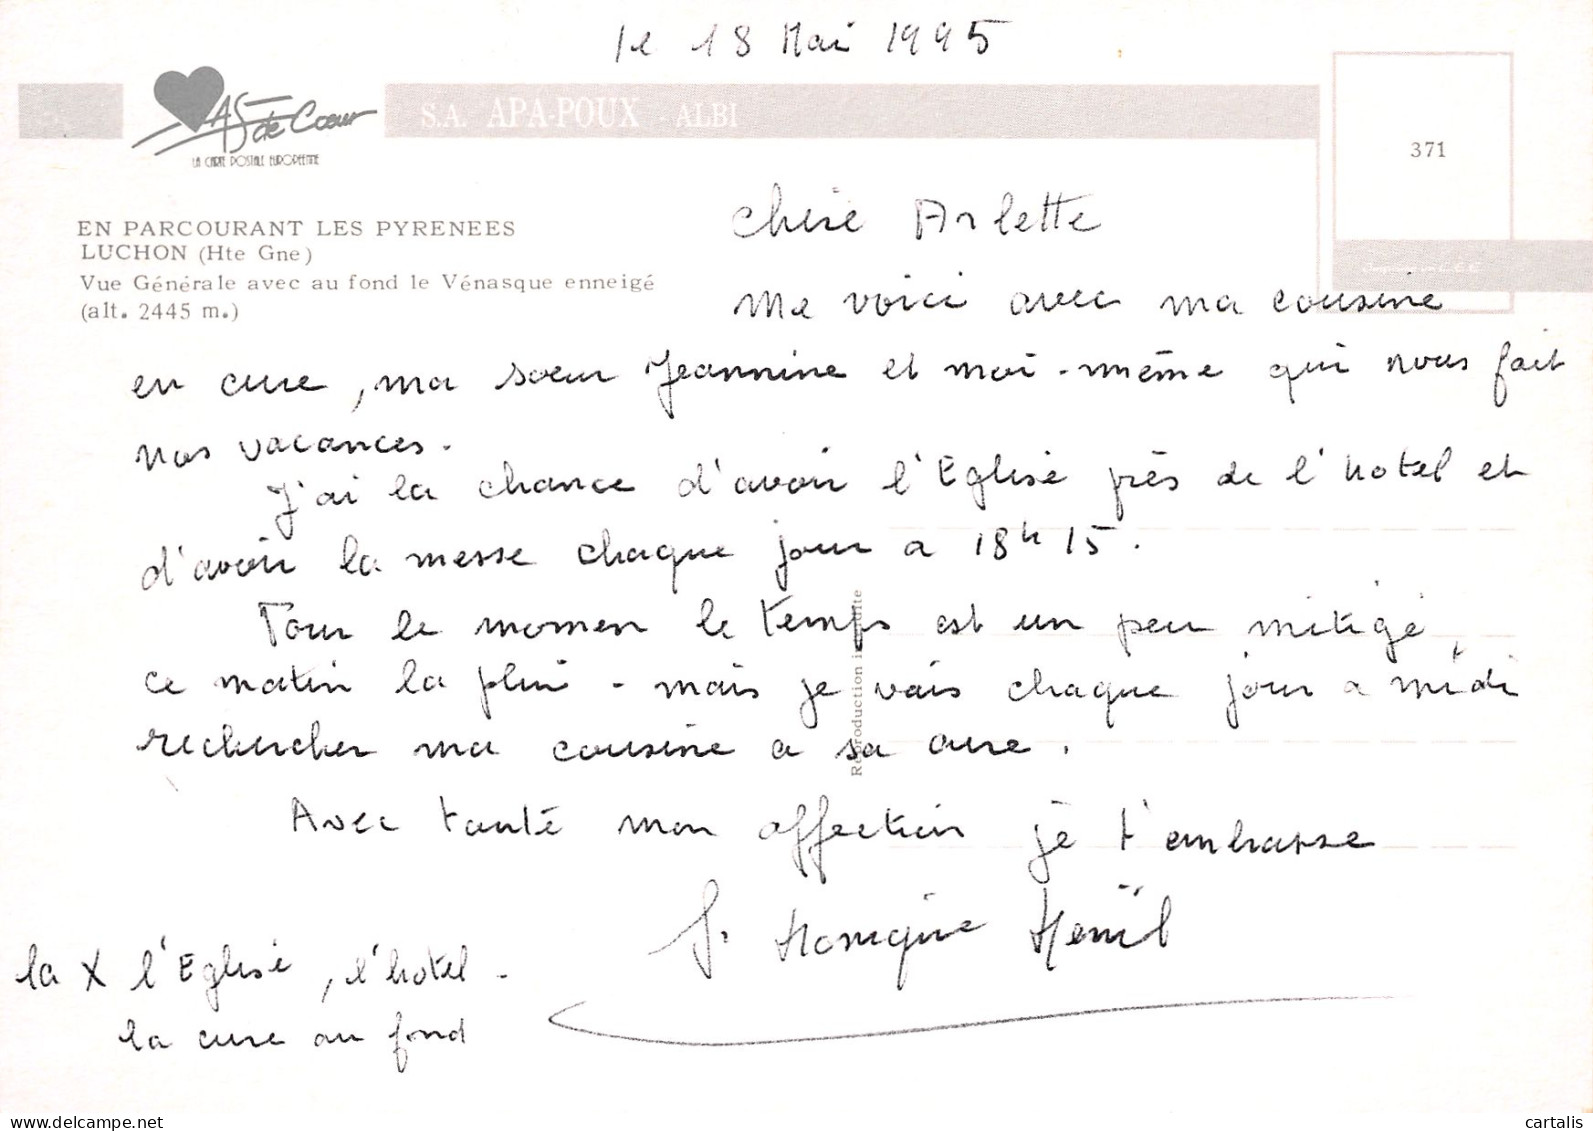 le 18 Mai 1995
AS de Coeur
LA CARTE POSTALE EUROPEENNE
S.A. APA-POUX - ALBI
371
EN PARCOURANT LES PYRENEES
LUCHON (Hte Gne)
Vue Générale avec au fond le Vénasque enneigé
(alt. 2445 m.)
Chère Arlette
Me voici avec ma cousine
en cure, ma soeur Jeannine et moi-même qui nous fait
nos vacances.
J'ai la chance d'avoir l'Eglise près de l'hotel et
d'avoir la messe chaque jour a 18h15.
Pour le momen le temps est un peu mitigé,
ce matin la plui - mais je vais chaque jour a midi
rechercher ma cousine a sa cure.
Avec touté mon affection je t'embrasse
Monique
la X l'Eglise, l'hotel -
la cure au fond
Reproduction interdite
cartalis
www.delcampe.net